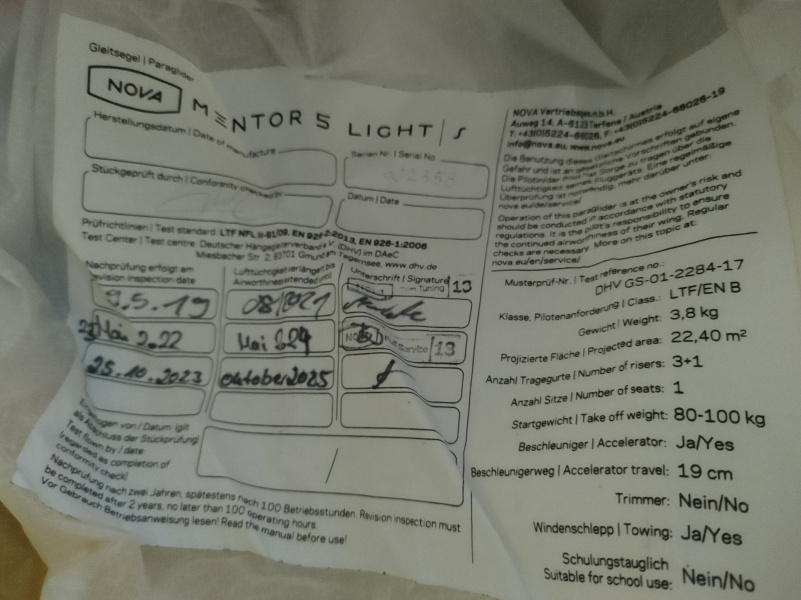 Gleitsegel | Paraglider
NOVA
MENTOR 5 LIGHT | S
Herstellungsdatum | Date of manufacture
Serien Nr. | Serial No
Stückgeprüft durch | Conformity checked by
Datum | Date
Prüfrichtlinien | Test standard: LTF NFL II-91/09, EN 926-2:2013, EN 926-1:2006
Test Center | Test centre: Deutscher Hängegleiterverband e.V. (DHV) im DAeC
Miesbacher Str. 2, 83701 Gmund am Tegernsee, www.dhv.de
Nachprüfung erfolgt am
Revision inspection date
Luftüchtigkeit verlängert bis
Airworthiness extended until
Unterschrift | Signature
13
.5.19
08/2021
Mai 2022
Mai 2024
Service 13
25.10.2023
Oktober 2025
Eingeflogen von / Datum (gilt
als Abschluss der Stückprüfung)
Test flown by / date
(regarded as completion of
conformity check)
/
Nachprüfung nach zwei Jahren, spätestens nach 100 Betriebsstunden. Revision inspection must
be completed after 2 years, no later than 100 operating hours.
Vor Gebrauch Betriebsanweisung lesen! Read the manual before use!
NOVA Vertriebsges.m.b.H.
Auweg 14, A-6123 Terfens / Austria
T: +43(0)5224-66026, F: +43(0)5224-66026-19
info@nova.eu, www.nova.eu
Die Benutzung dieses Gleitschirmes erfolgt auf eigene
Gefahr und ist an gesetzliche Vorschriften gebunden.
Die Pilotin/der Pilot hat Sorge zu tragen über die
Lufttüchtigkeit seines Fluggeräts. Eine regelmäßige
Überprüfung ist notwendig, mehr darüber unter:
nova.eu/de/service/
Operation of this paraglider is at the owner's risk and
should be conducted in accordance with statutory
regulations. It is the pilot's responsibility to ensure
the continued airworthiness of their wing. Regular
checks are necessary. More on this topic at:
nova.eu/en/service/
Musterprüf-Nr. | Test reference no.:
DHV GS-01-2284-17
Klasse, Pilotenanforderung | Class.: LTF/EN B
Gewicht | Weight: 3,8 kg
Projizierte Fläche | Projected area: 22,40 m²
Anzahl Tragegurte | Number of risers: 3+1
Anzahl Sitze | Number of seats: 1
Startgewicht | Take off weight: 80-100 kg
Beschleuniger | Accelerator: Ja/Yes
Beschleunigerweg | Accelerator travel: 19 cm
Trimmer: Nein/No
Windenschlepp | Towing: Ja/Yes
Schulungstauglich
Suitable for school use: Nein/No